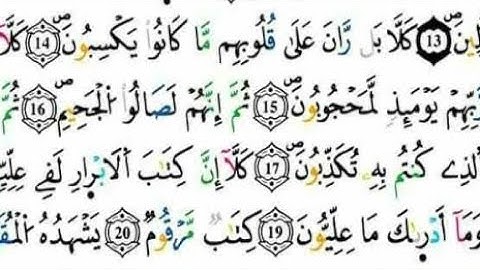 ـلِينَ ۝13 كَلَّا بَلْ رَانَ عَلَىٰ قُلُوبِهِمْ مَا كَانُوا يَكْسِبُونَ ۝14 كَلَّا
رَبِّهِمْ يَوْمَئِذٍ لَمَحْجُوبُونَ ۝15 ثُمَّ إِنَّهُمْ لَصَالُوا الْجَحِيمِ ۝16 ثُمَّ
الَّذِي كُنْتُمْ بِهِ تُكَذِّبُونَ ۝17 كَلَّا إِنَّ كِتَابَ الْأَبْرَارِ لَفِي عِلِّيِّـ
وَمَا أَدْرَاكَ مَا عِلِّيُّونَ ۝19 كِتَابٌ مَرْقُومٌ ۝20 يَشْهَدُهُ الْمُقَـ